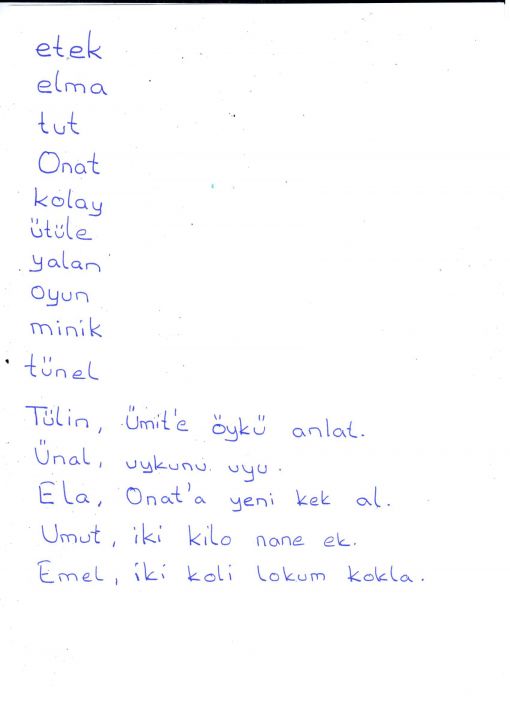 etek
elma
tut
Onat
kolay
ütüle
yalan
oyun
minik
tünel
Tülin, Ümit'e öykü anlat.
Ünal, uykunu uyu.
Ela, Onat'a yeni kek al.
Umut, iki kilo nane ek.
Emel, iki koli lokum kokla.